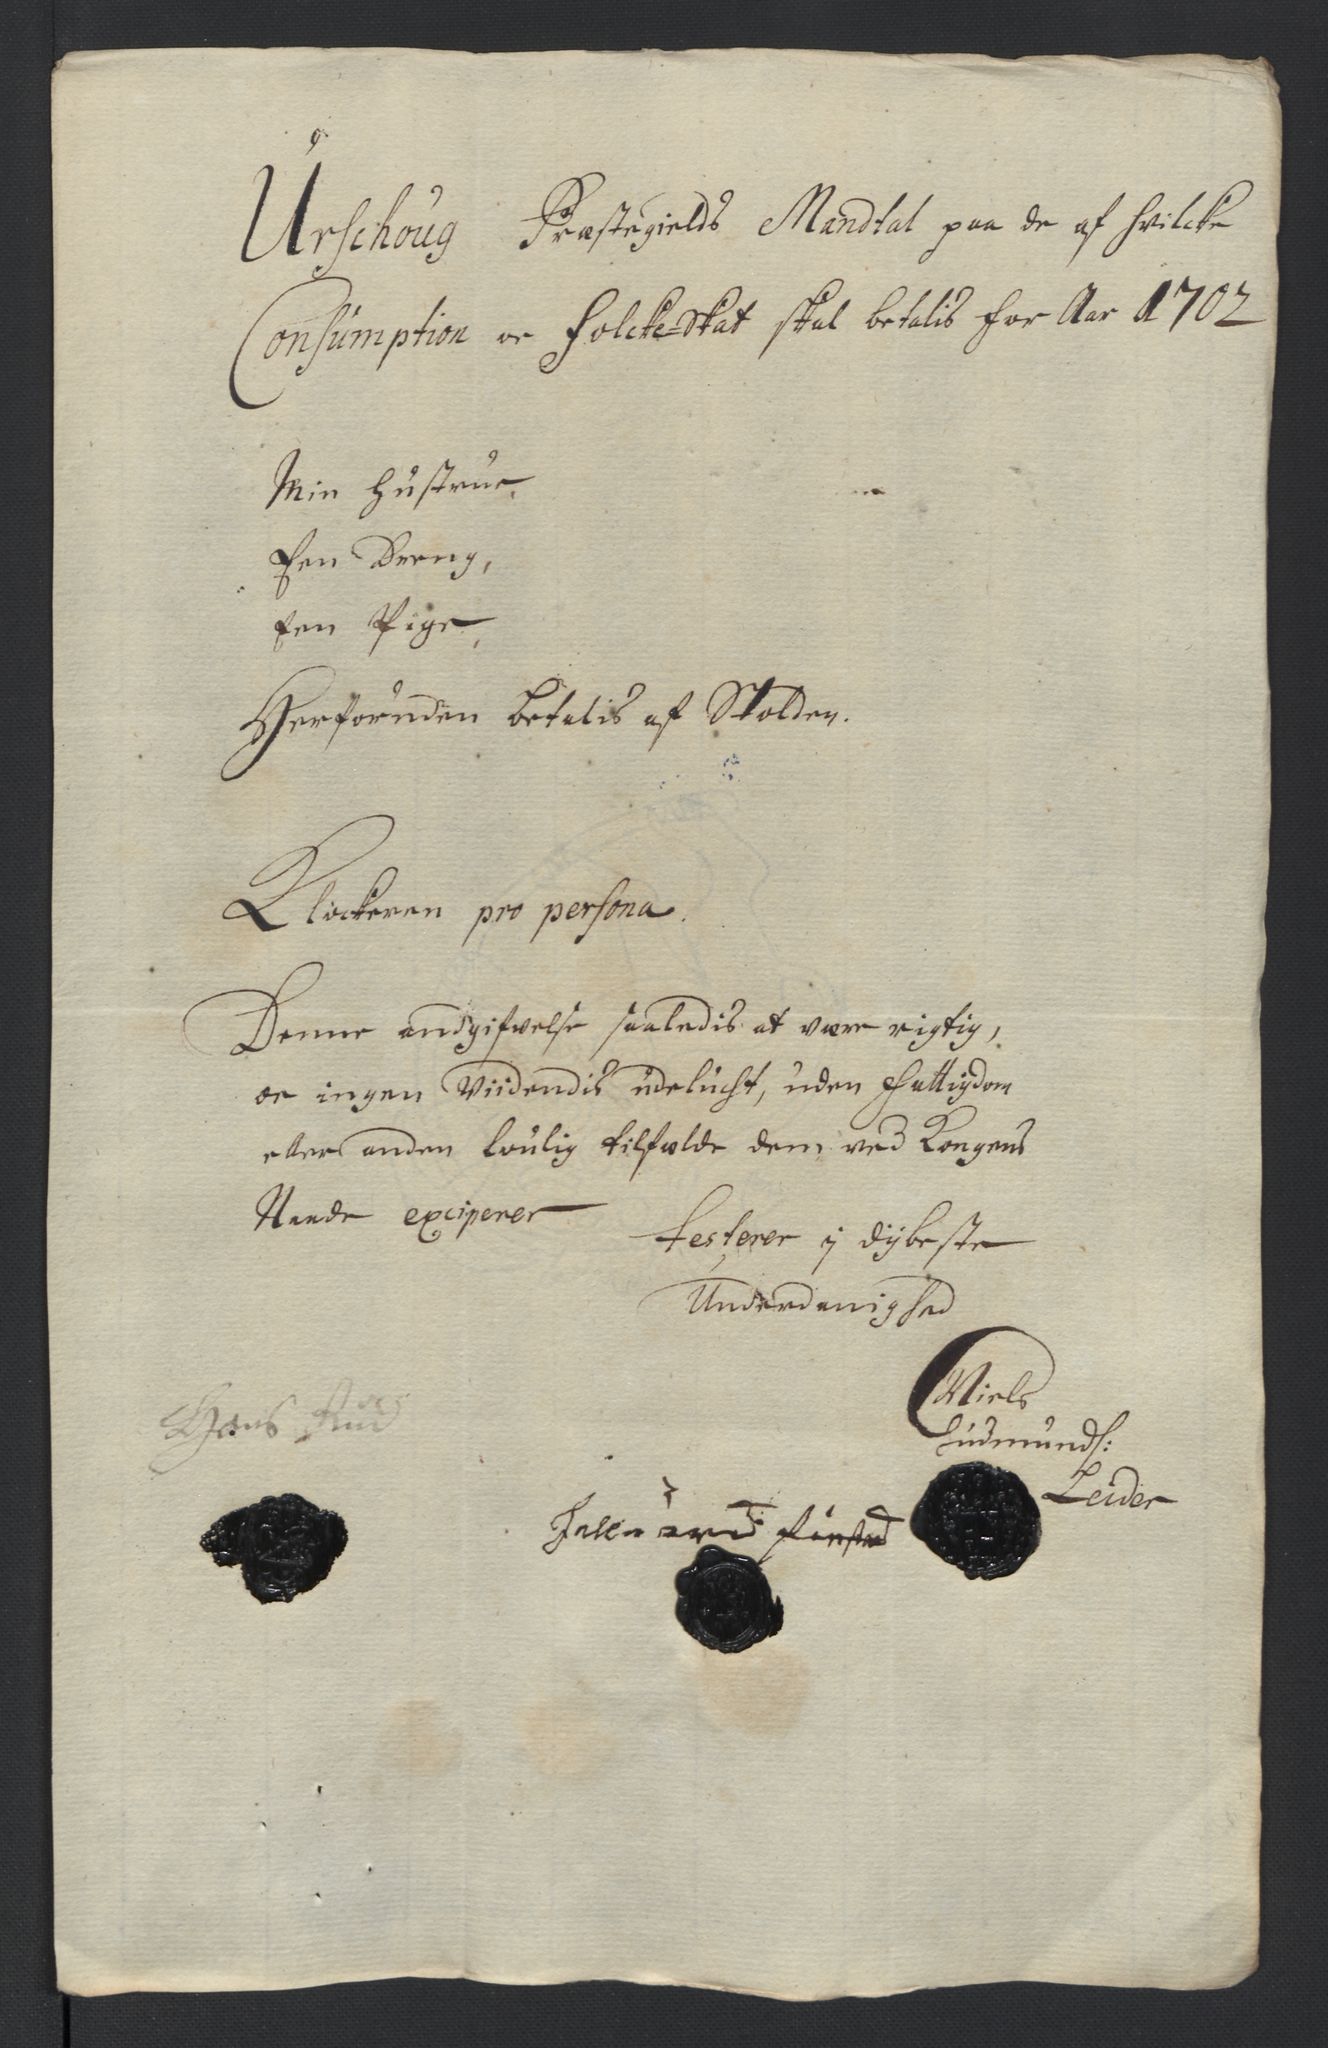 Urschoug Præstegields Mandtal paa de af hvilcke
Consumption oc Folcke=Skat skal betalis for Aar 1702
Min Hustrue,
Een Dreng,
Een Pige,
Herforuden betalis af Skolden.
Klockeren pro persona.
Denne andgifwelse saaledis at være rigtig,
oc ingen Viidendis udelucht, uden Fattigdom
eller anden loulig tilfælde dem ved Kongens
Naade exciperer
testerer ij dybeste
Underdanighed
Niels
Gudmunds:
Leuder
Hans Rud